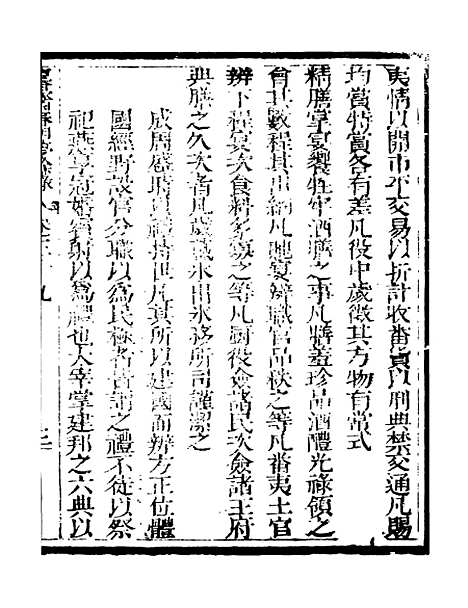 夷情以開市平交易以折計收番貨以刑典禁交通凡賜
均賞特賞各有差凡役中歲徵其方物有常式
精膳掌宴饗牲牢酒膳之事凡膳羞珍品酒醴光祿領之
會其數程其出納凡䟽宴辨職官品秩之等凡番夷土官
辨下程宴次食料多寡之等凡廚役僉諸民次僉諸王府
典膳之久次者凡歲藏氷出氷務所司謹潔之
成周盛時以禮持世凡其所以建國而辨方正位體
國經野設官分職以為民極者皆謂之禮不徒以祭
祀燕享冠婚賓射以為禮也大宰掌建邦之六典以
春明夢餘錄